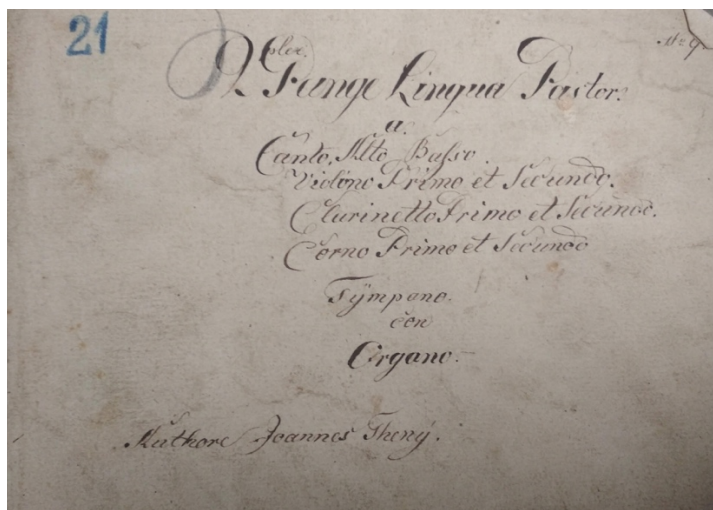 21
No 9
Pange Lingua Pastor.
a.
Canto, Alto Basso.
Violino Primo et Secundo.
Clarinetto Primo et Secundo.
Corno Primo et Secundo
Tÿmpano.
con
Organo.
Authore Joannes Thenÿ.